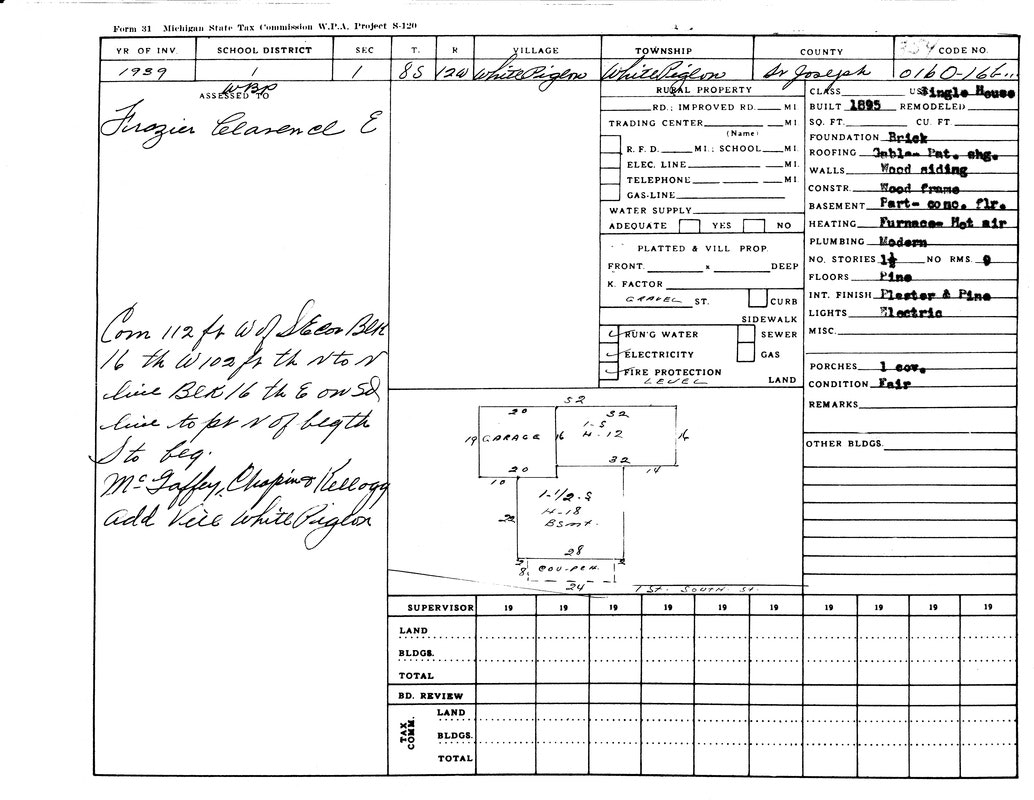 Form 31 Michigan State Tax Commission W.P.A. Project S-120
YR OF INV. SCHOOL DISTRICT SEC T. R VILLAGE TOWNSHIP COUNTY CODE NO.
1939 1 1 8S 12W White Pigeon White Pigeon St Joseph 0160-166
ASSESSED TO
Frazier Clarence E
Com 112 ft W of SE cor Blk
16 th W 102 ft th N to N
line Blk 16 th E on sd
line to pt N of beg th
S to beg.
McGaffey, Chapin & Kellogg
add Vill White Pigeon
RURAL PROPERTY
RD.; IMPROVED RD. MI
TRADING CENTER MI.
(Name)
R. F. D. MI.; SCHOOL MI.
ELEC. LINE MI.
TELEPHONE MI.
GAS-LINE
WATER SUPPLY
ADEQUATE YES NO
PLATTED & VILL PROP.
FRONT. x DEEP
K. FACTOR
GRAVEL ST. CURB
SIDEWALK
RUN'G WATER SEWER
ELECTRICITY GAS
FIRE PROTECTION
LEVEL LAND
CLASS Single House
BUILT 1895 REMODELED
SQ. FT. CU. FT.
FOUNDATION Brick
ROOFING Gable- Pat. shg.
WALLS Wood siding
CONSTR. Wood frame
BASEMENT Part- conc. flr.
HEATING Furnace- Hot air
PLUMBING Modern
NO. STORIES 1½ NO RMS. 9
FLOORS Pine
INT. FINISH Plaster & Pine
LIGHTS Electric
MISC.
PORCHES 1 cov.
CONDITION Fair
REMARKS
OTHER BLDGS.
52
20 32
1-S
19 GARAGE 16 H-12 16
20 32 14
10
1-1/2-S
H-18
22 Bsmt.
28
8 COV-PCH.
24
1 St. SOUTH St.
SUPERVISOR 19 19 19 19 19 19 19 19 19 19
LAND
BLDGS.
TOTAL
BD. REVIEW
TAX COMM.
LAND
BLDGS.
TOTAL